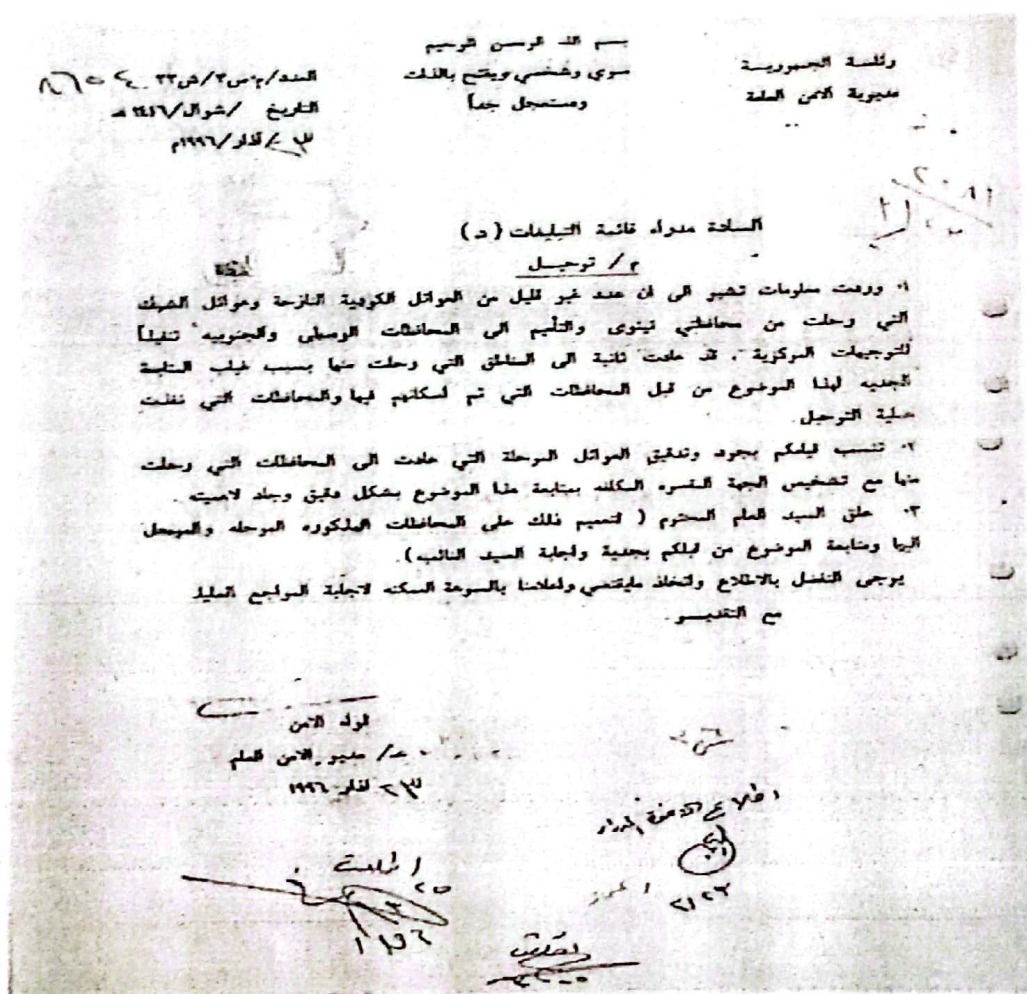 بسم الله الرحمن الرحيم
رئاسة الجمهورية
مديرية الامن العامة
سري وشخصي ويفتح بالذات
ومستعجل جداً
العدد/م.س٣/ش٢٣
التاريخ /شوال/١٤١٦ هـ
٢٣/آذار/١٩٩٦م
السادة مدراء قائمة التبليغات (د)
م/ ترحيل
١. وردت معلومات تشير الى ان عدد غير قليل من العوائل الكردية النازحة وعوائل الشبك
التي رحلت من محافظتي نينوى والتأميم الى المحافظات الوسطى والجنوبيه تنفيذاً
للتوجيهات المركزية . قد عادت ثانية الى المناطق التي رحلت منها بسبب غياب المتابعة
الجديه لهذا الموضوع من قبل المحافظات التي تم اسكانهم فيها والمحافظات التي نفذت
عملية الترحيل.
٢. تنسب قيامكم بجرد وتدقيق العوائل المرحلة التي عادت الى المحافظات التي رحلت
منها مع تشخيص الجهة المكلفه بمتابعة هذا الموضوع بشكل دقيق وجاد لاهميته .
٣. علق السيد العام المحترم ( لتعميم ذلك على المحافظات المذكوره المرحله والمرحل
اليها ومتابعة الموضوع من قبلكم بجدية واجابة السيد النائب).
يرجى التفضل بالاطلاع واتخاذ مايقتضي واعلامنا بالسرعة الممكنه لاجابة المراجع العليا.
مع التقديــر.
لواء الامن
ع/ مدير الامن العام
٢٣ آذار ١٩٩٦
اطلاع الاخوة المدراء
٢٣/٣
اطلعت
٢٥